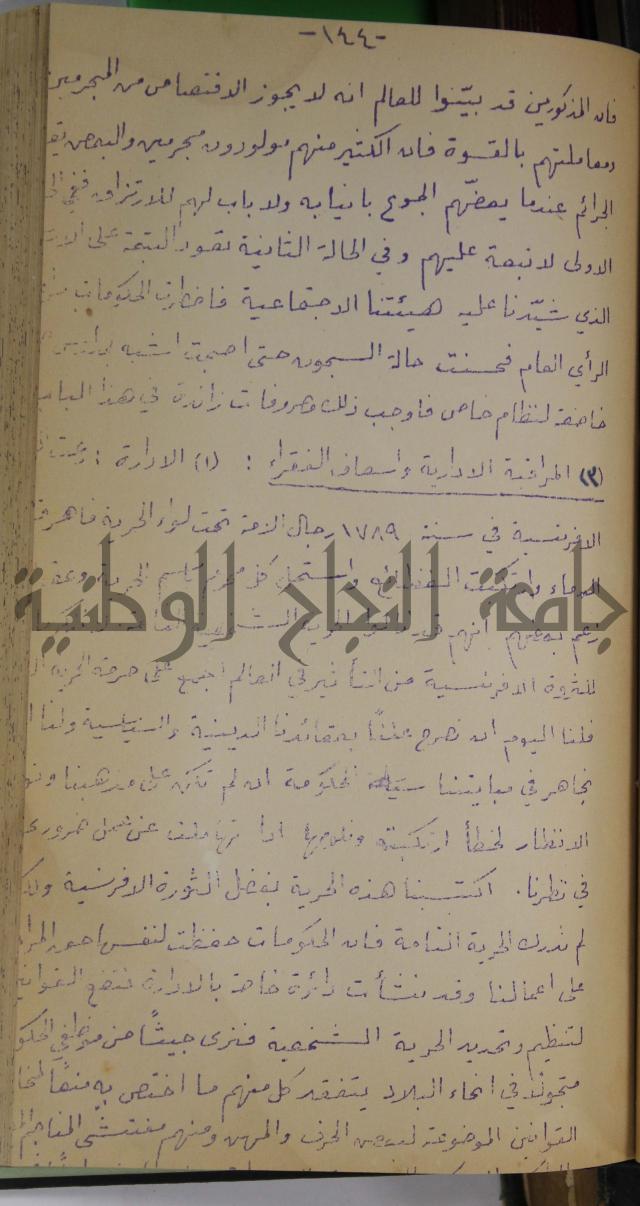 -١٤٤-
فان المذكورين قد بيّنوا للعالم انه لا يجوز الاقتصاص من المجرمين
ومعاملتهم بالقسوة فان الكثير منهم مولودون مجرمين والبعض
الجرائم عندما يعضّهم الجوع بانيابه ولا باب لهم للارتزاق ففي
الاولى لا تبعة عليهم وفي الحالة الثانية تعود التبعة على
الذي شيّدنا عليه هيئتنا الاجتماعية فاضطرت الحكومات
الرأي العام فحسنت حالة السجون حتى اصبحت اشبه
خاضعة لنظام خاص فاوجب ذلك مصروفات زائدة في هذا الباب
(٣) المراقبة الادارية واسعاف الفقراء : (١) الادارة :
الافرنسية في سنة ١٧٨٩ رجال الامة تحت لواء الحرية
الدماء وارتكبت الفظائع واستحل كل محرم باسم الحرية
زعم بعضهم انهم
للثورة الافرنسية من التأثير في العالم اجمع على
فلنا اليوم ان نصرح علنًا بعقائدنا الدينية والسياسية ولنا
نجاهر في مباينتنا الحكومة ان لم تكن على مذهبنا
الانظار لخطأ ارتكبته ونلومها اذا تهاملت عن عمل ضروري
في نظرنا . اكتسبنا هذه الحرية بفضل الثورة الافرنسية
لم ندرك الحرية التامة فان الحكومات حفظت لنفسها حق
على اعمالنا وقد نشأت دائرة خاصة بالادارة تضع القوانين
لتنظيم وتحديد الحرية الشخصية فنرى جيشًا من موظفي
متجولًا في انحاء البلاد يتفقد كل منهم ما اختص به منعًا
القوانين الموضوعة لبعض الحرف والمهن ومنهم مفتشي المناجم
جامعة النجاح الوطنية